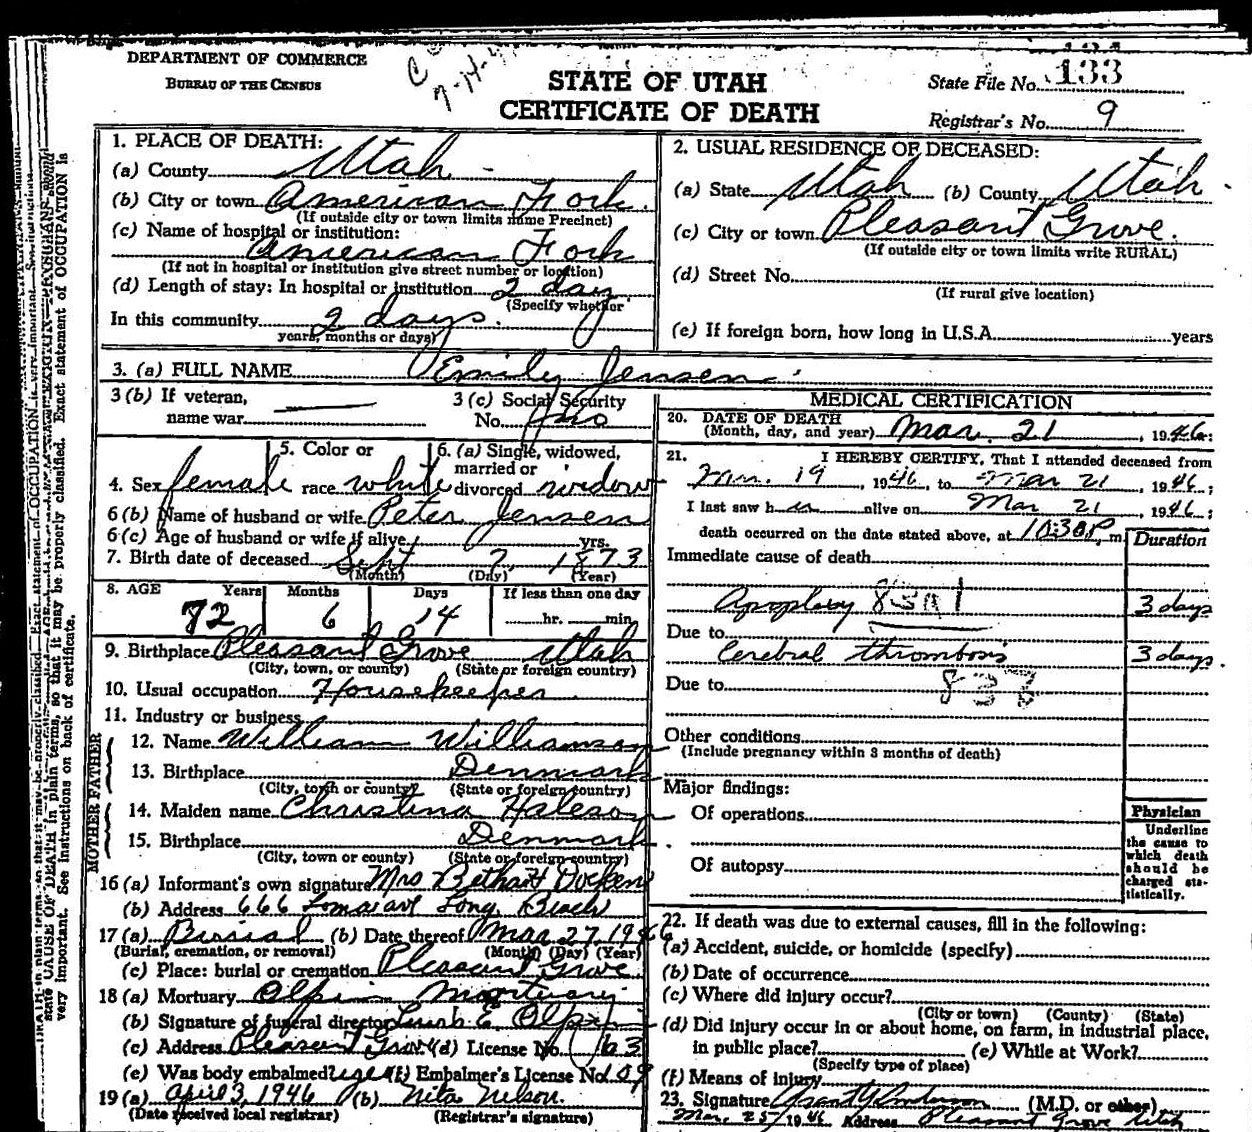 DEPARTMENT OF COMMERCE
BUREAU OF THE CENSUS
STATE OF UTAH
CERTIFICATE OF DEATH
State File No. 133
Registrar's No. 9
1. PLACE OF DEATH:
(a) County Utah
(b) City or town American Fork.
(If outside city or town limits name Precinct)
(c) Name of hospital or institution:
American Fork
(If not in hospital or institution give street number or location)
(d) Length of stay: In hospital or institution 2 day
(Specify whether
In this community 2 days.
years, months or days)
2. USUAL RESIDENCE OF DECEASED:
(a) State Utah (b) County Utah
(c) City or town Pleasant Grove.
(If outside city or town limits write RURAL)
(d) Street No.
(If rural give location)
(e) If foreign born, how long in U.S.A. years
3. (a) FULL NAME Emily Jensen
3 (b) If veteran,
name war
3 (c) Social Security
No. no
4. Sex female
5. Color or
race white
6. (a) Single, widowed,
married or
divorced widow
6 (b) Name of husband or wife Peter Jensen
6 (c) Age of husband or wife if alive yrs.
7. Birth date of deceased Sept 7 1873
(Month) (Day) (Year)
8. AGE Years Months Days If less than one day
72 6 14 hr. min.
9. Birthplace Pleasant Grove Utah
(City, town, or county) (State or foreign country)
10. Usual occupation Housekeeper
11. Industry or business
FATHER
12. Name William Williamson
13. Birthplace Denmark
(City, town or county) (State or foreign country)
MOTHER
14. Maiden name Christina
15. Birthplace Denmark.
(City, town or county) (State or foreign country)
16 (a) Informant's own signature Mrs
(b) Address 666 Long Beach
17 (a) Burial (b) Date thereof Mar 27 1946
(Burial, cremation, or removal) (Month) (Day) (Year)
(c) Place: burial or cremation Pleasant Grove
18 (a) Mortuary Mortuary
(b) Signature of funeral director
(c) Address Pleasant Grove (d) License No. 163
(e) Was body embalmed? yes (f) Embalmer's License No. 109
19 (a) April 3, 1946 (b) Nita Nelson.
(Date received local registrar) (Registrar's signature)
MEDICAL CERTIFICATION
20. DATE OF DEATH
(Month, day, and year) Mar. 21, 1946:
21. I HEREBY CERTIFY, That I attended deceased from
Mar. 19, 1946, to Mar 21, 1946;
I last saw her alive on Mar 21, 1946;
death occurred on the date stated above, at 10:30 P. m.
Duration
Immediate cause of death
Apoplexy 83A1 3 days
Due to
Cerebral thrombosis 3 days.
Due to 83
Other conditions
(Include pregnancy within 3 months of death)
Major findings:
Of operations
Of autopsy
Physician
Underline
the cause to
which death
should be
charged sta-
tistically.
22. If death was due to external causes, fill in the following:
(a) Accident, suicide, or homicide (specify)
(b) Date of occurrence
(c) Where did injury occur?
(City or town) (County) (State)
(d) Did injury occur in or about home, on farm, in industrial place,
in public place? (e) While at Work?
(Specify type of place)
(f) Means of injury
23. Signature Grant Y Anderson (M.D. or other)
Mar. 25, 1946 Address Pleasant Grove Utah